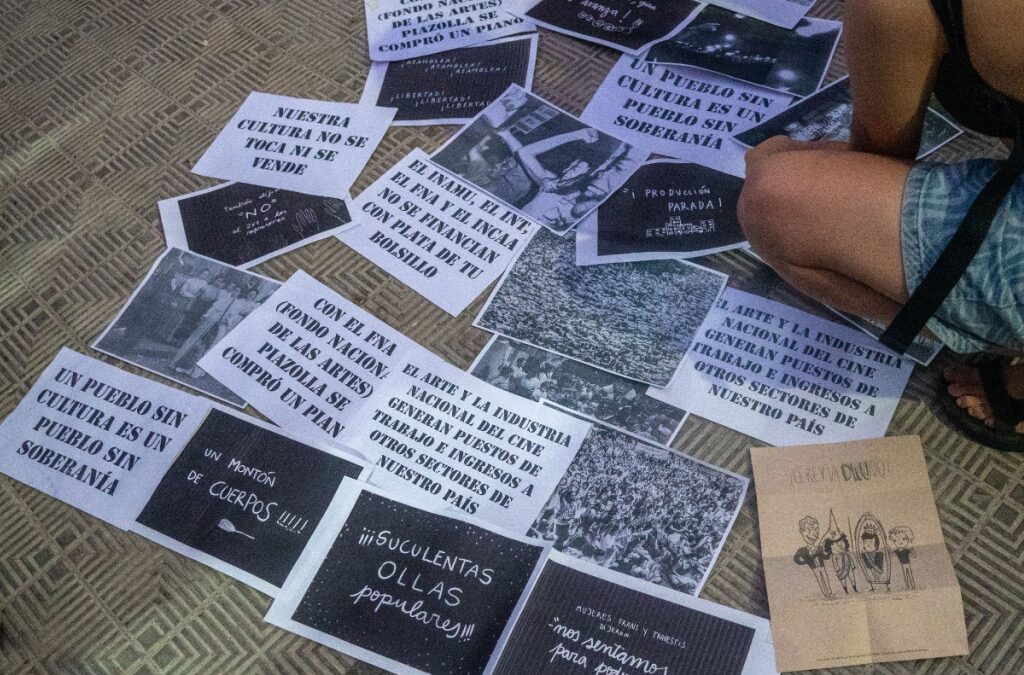 (FONDO NACIONAL
DE LAS ARTES)
PIAZOLLA SE
COMPRÓ UN PIANO
¡ASAMBLEA!
¡ASAMBLEA!
¡ASAMBLEA!
¡LIBERTAD!
¡LIBERTAD!
¡LIBERTAD!
UN PUEBLO SIN
CULTURA ES UN
PUEBLO SIN
SOBERANÍA
NUESTRA
CULTURA NO SE
TOCA NI SE
VENDE
"NO"
EL INAMU, EL INT,
EL FNA Y EL INCAA
NO SE FINANCIAN
CON PLATA DE TU
BOLSILLO
¡PRODUCCIÓN
PARADA!
EL ARTE Y LA INDUSTRIA
NACIONAL DEL CINE
GENERAN PUESTOS DE
TRABAJO E INGRESOS A
OTROS SECTORES DE
NUESTRO PAÍS
CON EL FNA
(FONDO NACIONAL
DE LAS ARTES)
PIAZOLLA SE
COMPRÓ UN PIAN
EL ARTE Y LA INDUSTRIA
NACIONAL DEL CINE
GENERAN PUESTOS DE
TRABAJO E INGRESOS A
OTROS SECTORES DE
NUESTRO PAÍS
UN PUEBLO SIN
CULTURA ES UN
PUEBLO SIN
SOBERANÍA
UN MONTÓN
DE CUERPOS!!!!!
¡¡¡SUCULENTAS
OLLAS
populares!!!
MUJERES TRANS Y TRAVESTIS
DIJERON
"nos sentamos